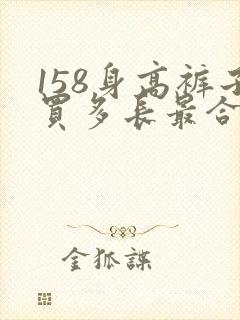 158身高裤子
買多长最合
金狐諜